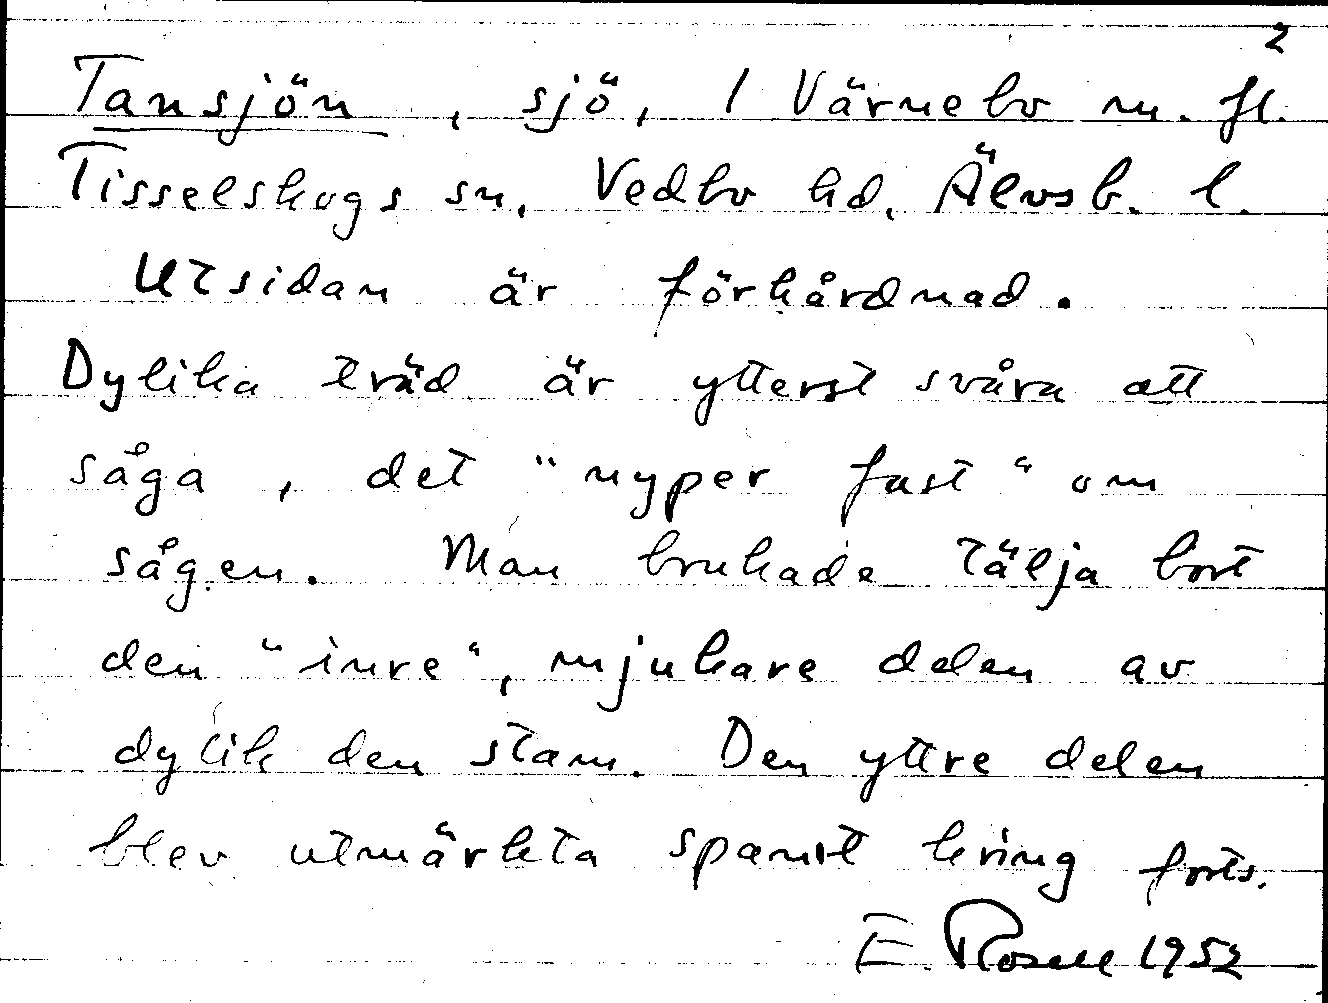 2
Tansjön, sjö, 1 Värnebo m. fl.
Tisselskogs sn, Vedbo hd, Älvsb. l.
Utsidan är förhårdnad.
Dylika träd är ytterst svåra att
såga, det "nyper fast" om
sågen. Man brukade tälja bort
den "inre", mjukare delen av
dylik den stam. Den yttre delen
blev utmärkta spant kring forts.
E. Rosell 1952